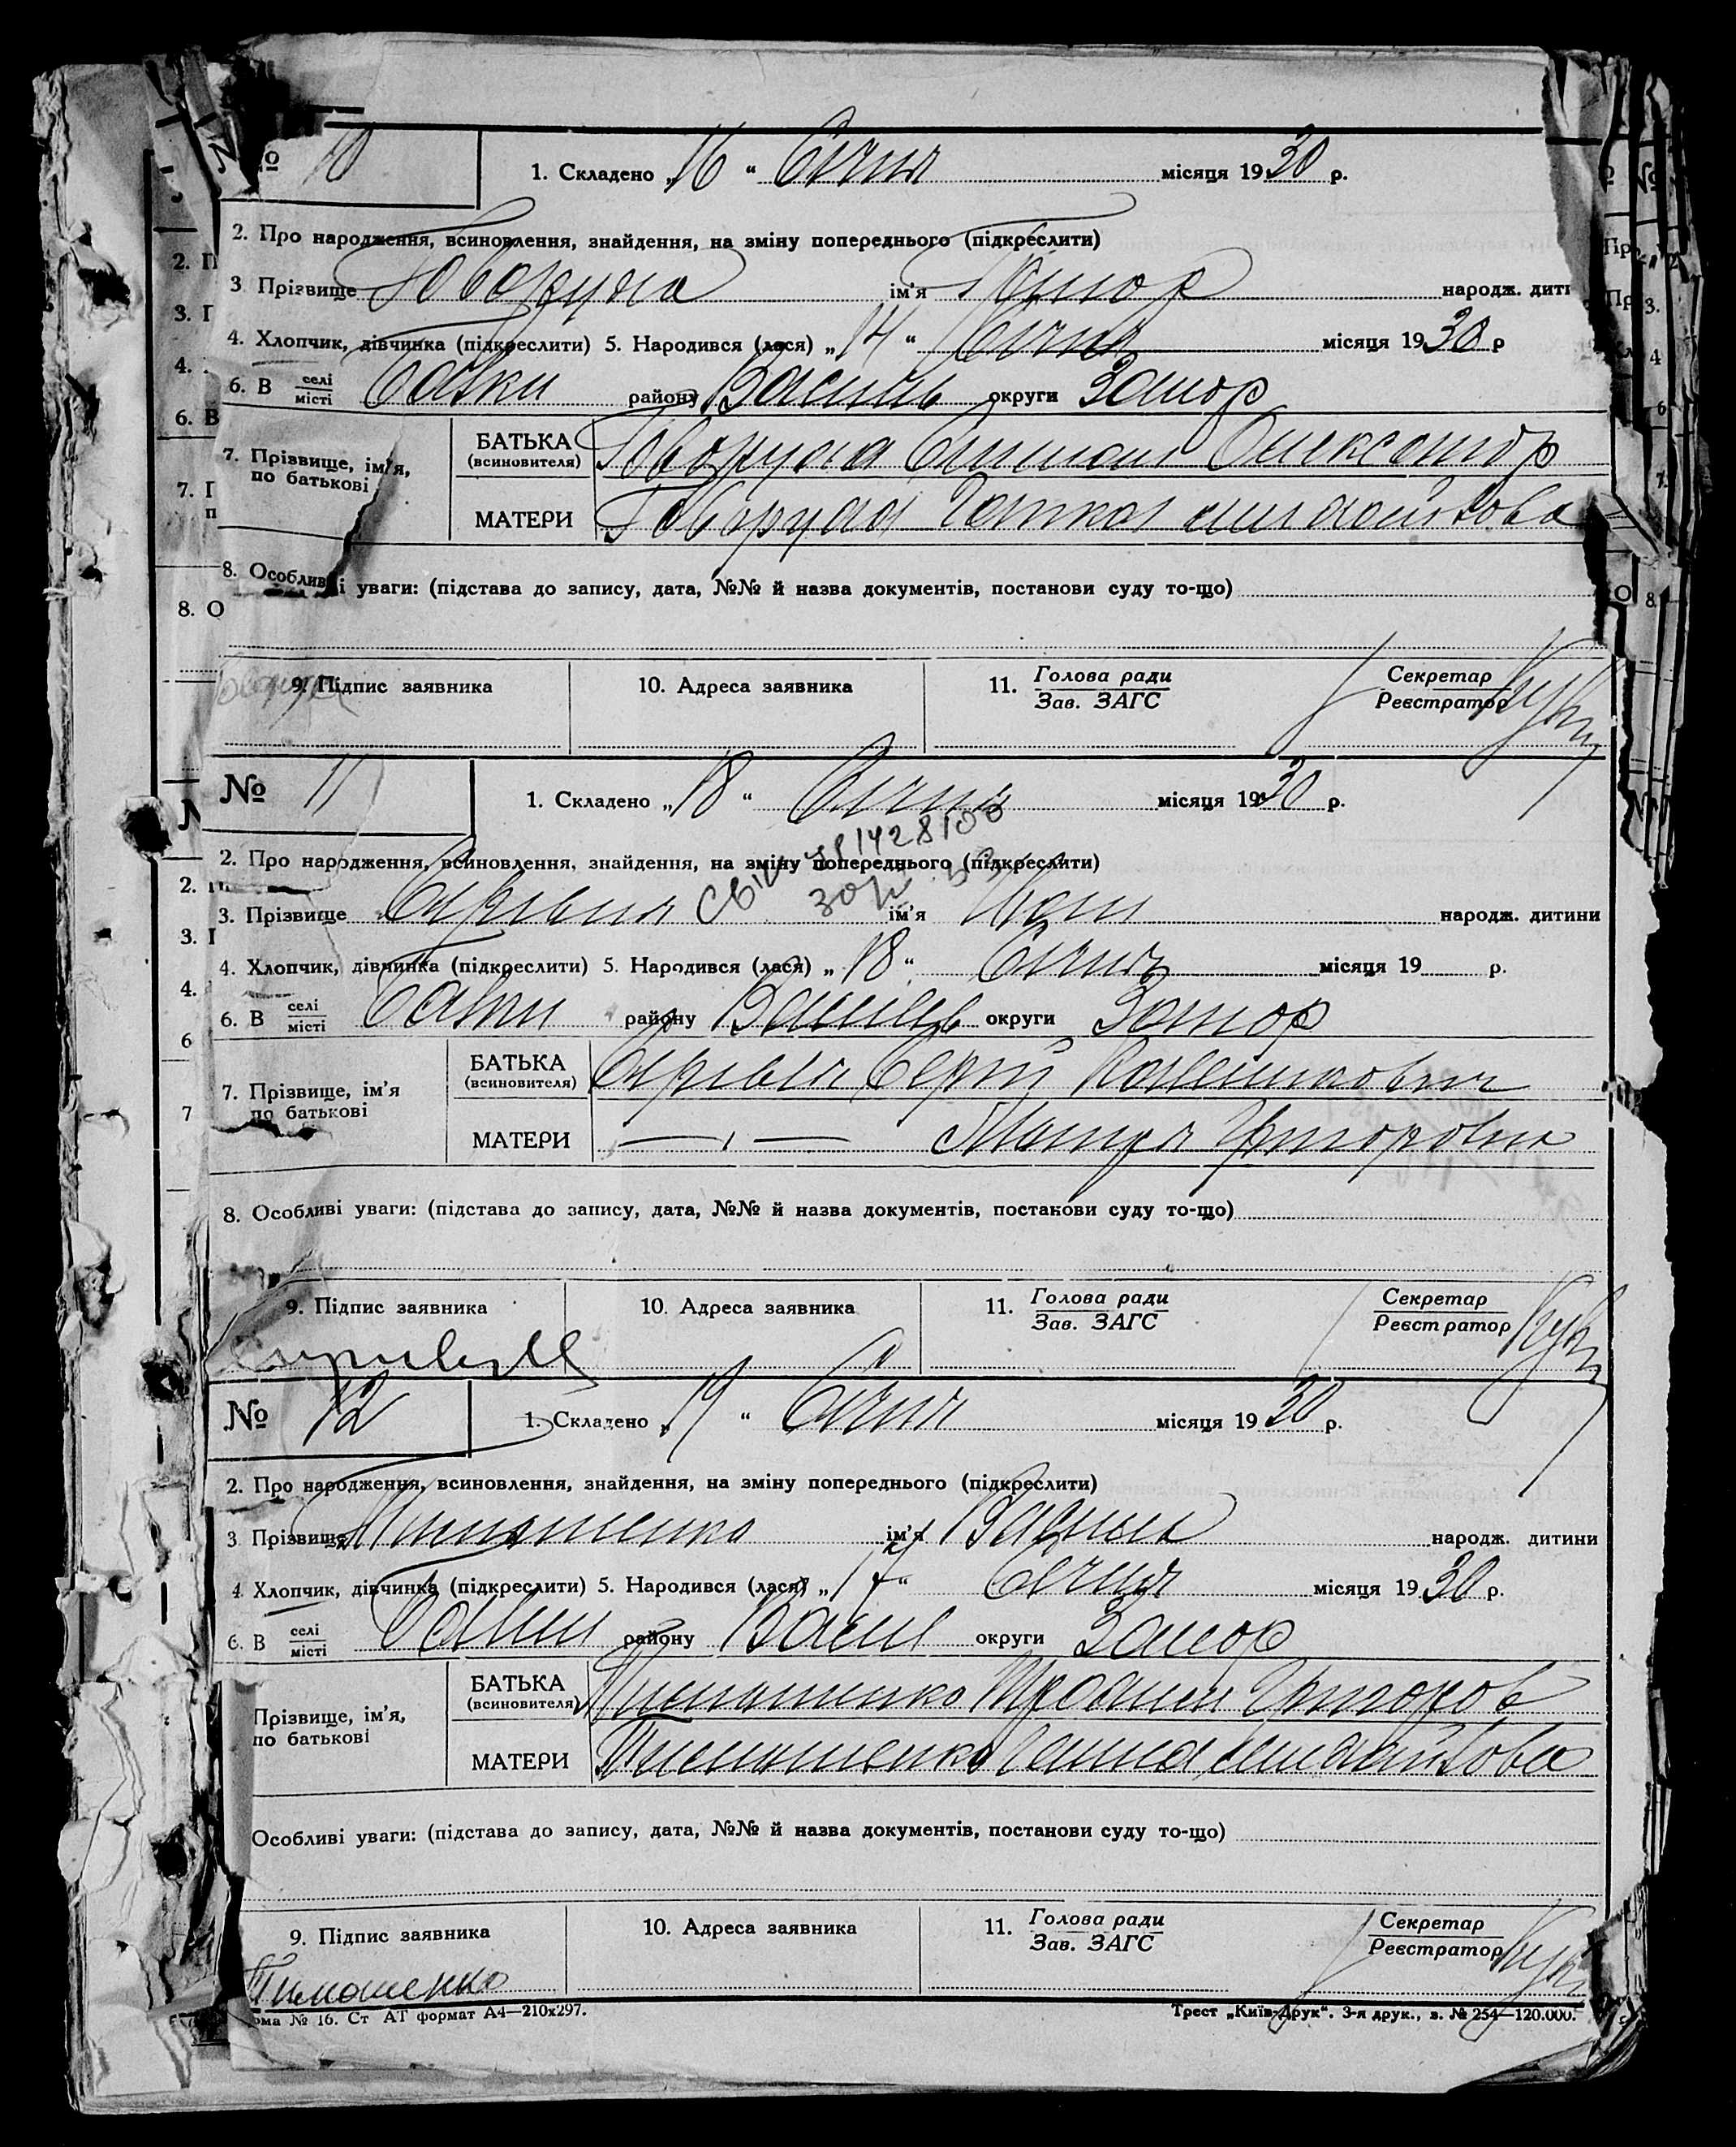 № 10 1. Складено „16“ Січня місяця 1930 р.
2. Про народження, всиновлення, знайдення, на зміну попереднього (підкреслити)
3 Прізвище Говоруха ім'я народж. дити
4. Хлопчик, дівчинка (підкреслити) 5. Народився (лася) „14“ Січня місяця 1930 р
6. В селі місті Балки району Василів округи Запор
7. Прізвище, ім'я, по батькові БАТЬКА (всиновителя) Говоруха Олександр
МАТЕРИ Говоруха
8. Особливі уваги: (підстава до запису, дата, №№ й назва документів, постанови суду то-що)
9. Підпис заявника 10. Адреса заявника 11. Голова ради Зав. ЗАГС Секретар Реєстратор
№ 11 1. Складено „18“ Січня місяця 1930 р.
2. Про народження, всиновлення, знайдення, на зміну попереднього (підкреслити)
3. Прізвище ім'я Іван народж. дитини
4. Хлопчик, дівчинка (підкреслити) 5. Народився (лася) „18“ Січня місяця 19 р.
6. В селі місті Балки району Василів округи Запор
7. Прізвище, ім'я по батькові БАТЬКА (всиновителя) Сергій
МАТЕРИ — „ — Мотря Григоровна
8. Особливі уваги: (підстава до запису, дата, №№ й назва документів, постанови суду то-що)
9. Підпис заявника 10. Адреса заявника 11. Голова ради Зав. ЗАГС Секретар Реєстратор
№ 12 1. Складено „19“ Січня місяця 1930 р.
2. Про народження, всиновлення, знайдення, на зміну попереднього (підкреслити)
3 Прізвище Тимошенко ім'я народж. дитини
4 Хлопчик, дівчинка (підкреслити) 5. Народився (лася) „17“ Січня місяця 1930 р.
6. В селі місті Балки району Васил округи Запор
Прізвище, ім'я, по батькові БАТЬКА (всиновителя) Тимошенко Григоров
МАТЕРИ Тимошенко Ганна
Особливі уваги: (підстава до запису, дата, №№ й назва документів, постанови суду то-що)
9. Підпис заявника 10. Адреса заявника 11. Голова ради Зав. ЗАГС Секретар Реєстратор
Тимошенко
ома № 16. Ст АТ формат А4—210х297. Трест „Київ-Друк“. 3-я друк., з. № 254—120.000.